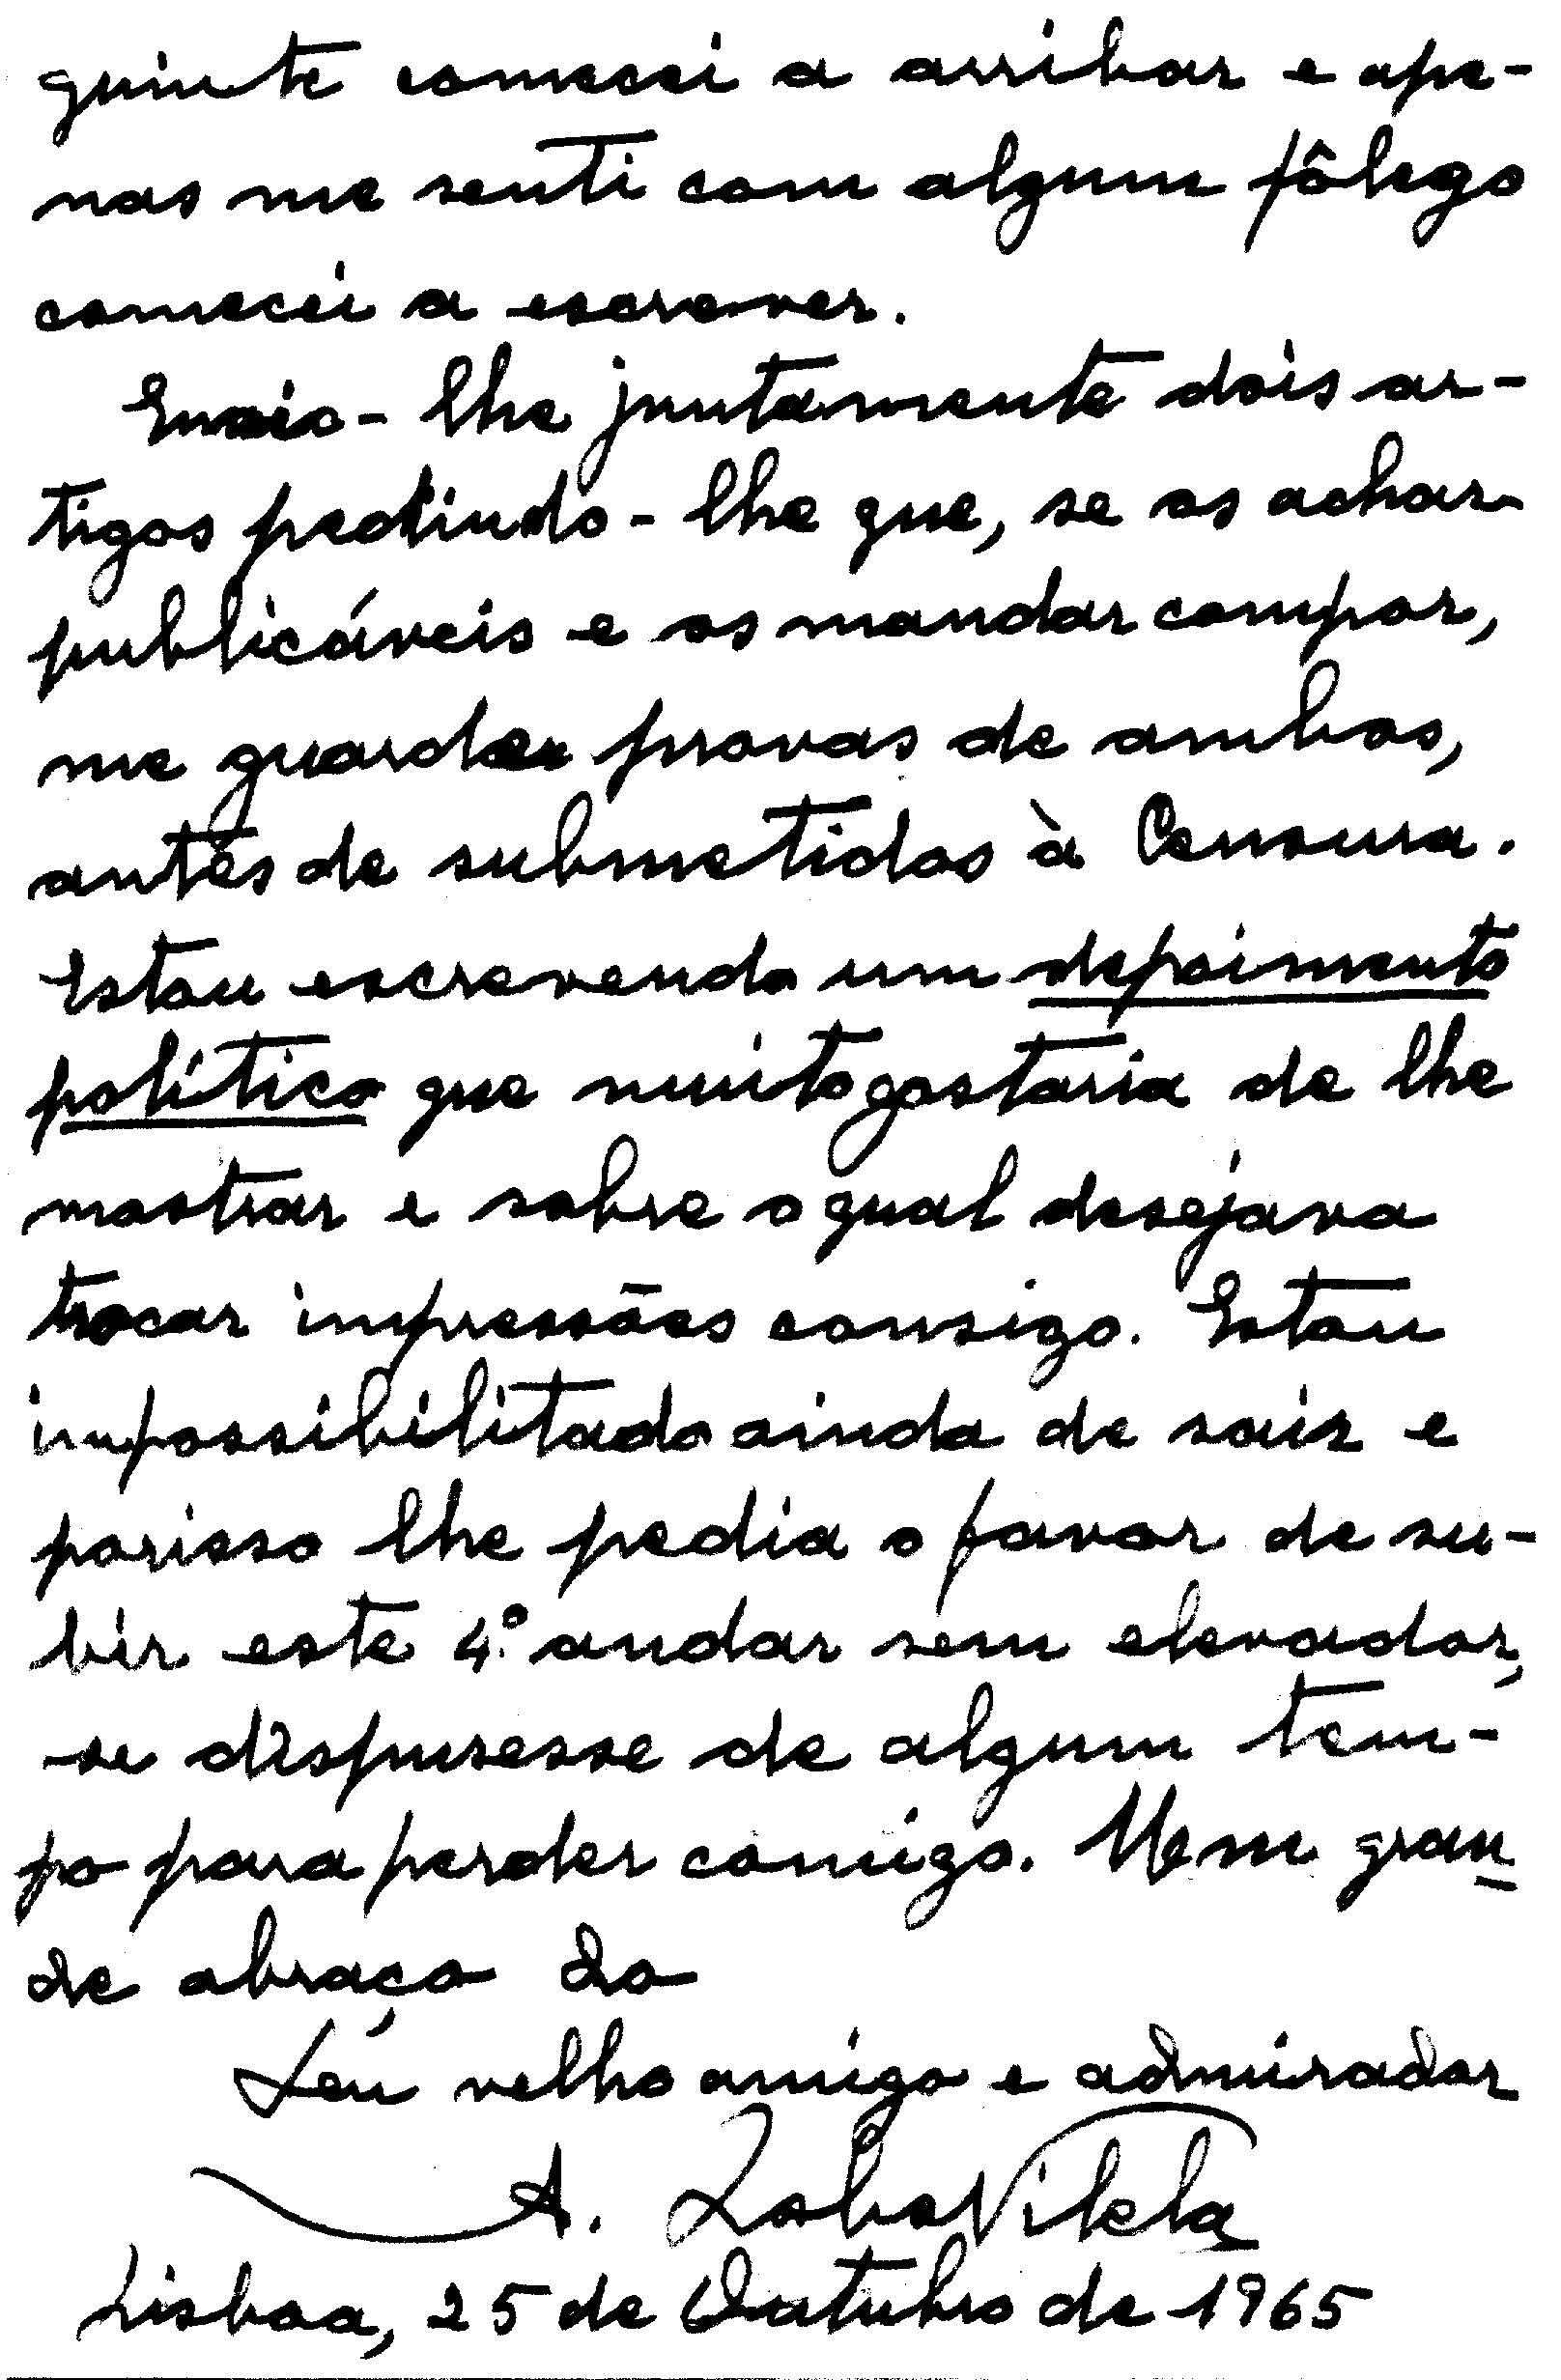 guinte comecei a arribar e ape-
nas me senti com algum fôlego
comecei a escrever.
Envio-lhe juntamente dois ar-
tigos pedindo-lhe que, se os achar
publicáveis e os mandar compor,
me guarder provas de ambos,
antes de submetidos à Censura.
Estou escrevendo um depoimento
político que muito gostaria de lhe
mostrar e sobre o qual desejava
trocar impressões consigo. Estou
impossibilitado ainda de sair e
porisso lhe pedia o favor de su-
bir este 4.º andar sem elevador,
se dispusesse de algum tem-
po para perder comigo. Um gran-
de abraço do
Seu velho amigo e admirador
A. Lobo Vilela
Lisboa, 25 de Outubro de 1965